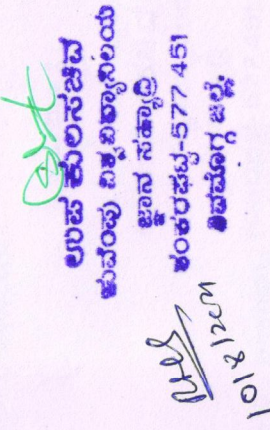 ಉಪ ಕುಲಸಚಿವ
ಕುವೆಂಪು ವಿಶ್ವವಿದ್ಯಾನಿಲಯ
ಜ್ಞಾನ ಸಹ್ಯಾದ್ರಿ
ಶಂಕರಘಟ್ಟ-577 451
ಶಿವಮೊಗ್ಗ ಜಿಲ್ಲೆ